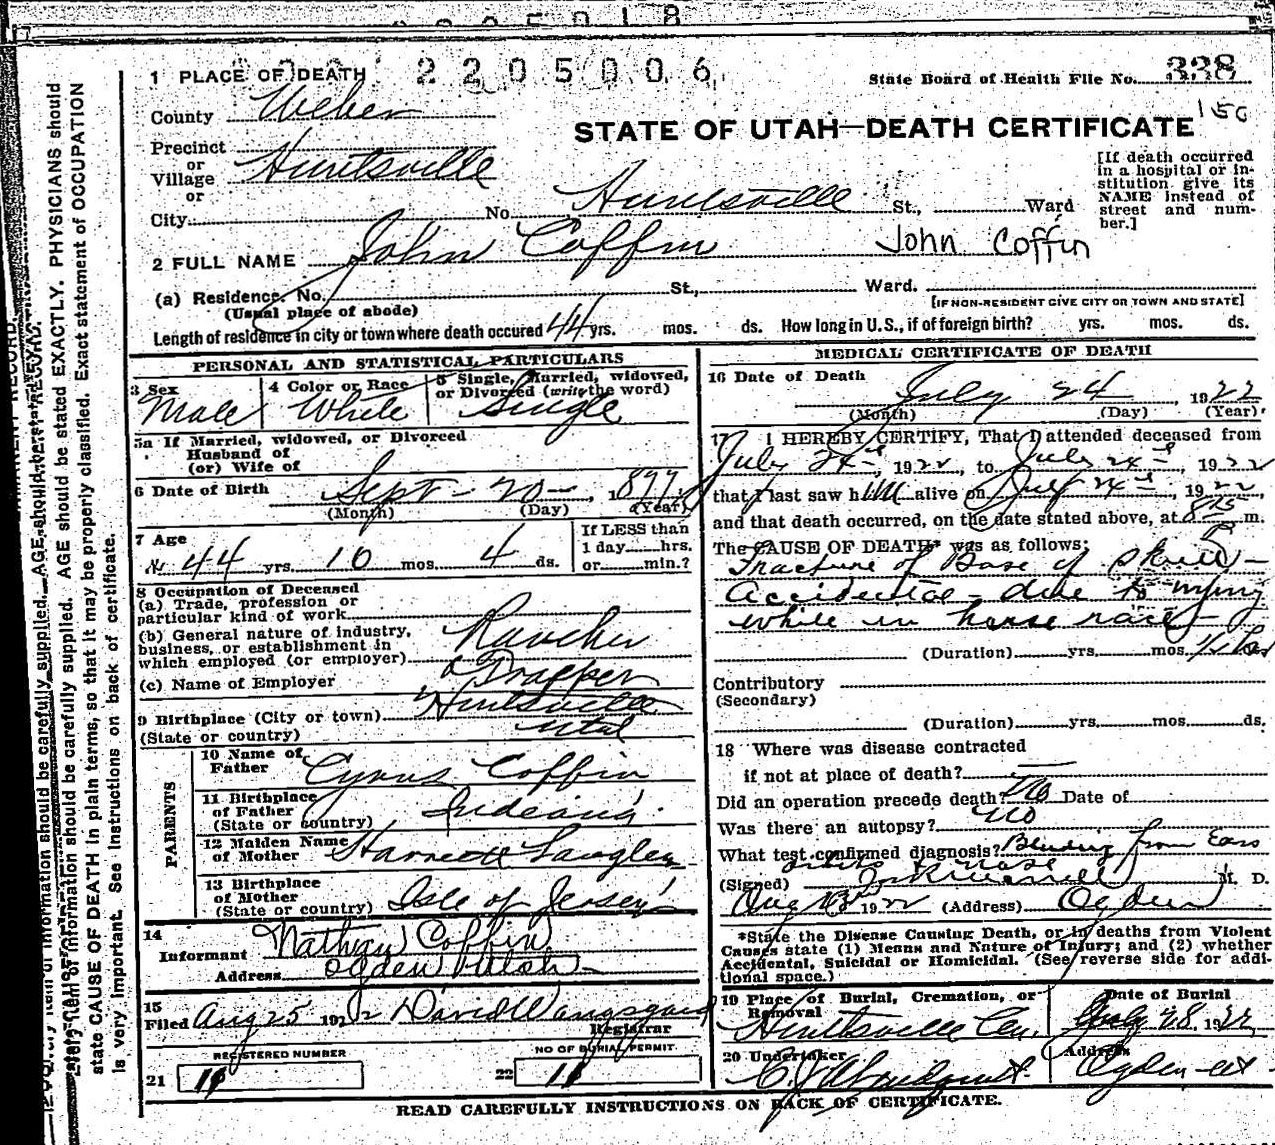 2205006
1 PLACE OF DEATH
State Board of Health File No. 338
County Weber
STATE OF UTAH—DEATH CERTIFICATE
Precinct
or
Village Huntsville
or
City No. Huntsville St., Ward
[If death occurred
in a hospital or in-
stitution give its
NAME instead of
street and num-
ber.]
2 FULL NAME John Coffin John Coffin
(a) Residence. No. St., Ward.
(Usual place of abode) [IF NON-RESIDENT GIVE CITY OR TOWN AND STATE]
Length of residence in city or town where death occured 44 yrs. mos. ds. How long in U.S., if of foreign birth? yrs. mos. ds.
PERSONAL AND STATISTICAL PARTICULARS
3 Sex
Male
4 Color or Race
White
5 Single, Married, widowed,
or Divorced (write the word)
Single
5a If Married, widowed, or Divorced
Husband of
(or) Wife of
6 Date of Birth Sept - 20 -, 1877
(Month) (Day) (Year)
7 Age
44 yrs. 10 mos. 4 ds.
If LESS than
1 day hrs.
or min.?
8 Occupation of Deceased
(a) Trade, profession or
particular kind of work
(b) General nature of industry,
business, or establishment in
which employed (or employer) Rancher
(c) Name of Employer
9 Birthplace (City or town) Huntsville
(State or country) Utah
PARENTS
10 Name of
Father Cyrus Coffin
11 Birthplace
of Father
(State or country) Indiana
12 Maiden Name
of Mother Langley
13 Birthplace
of Mother
(State or country) Isle of Jersey
14
Informant Nathan Coffin
Address Ogden Utah
15
Filed Aug 25 192 David Wangsgard
Registrar
REGISTERED NUMBER
21
NO OF BURIAL PERMIT.
22
MEDICAL CERTIFICATE OF DEATH
16 Date of Death July 24, 1922
(Month) (Day) (Year)
17 I HEREBY CERTIFY, That I attended deceased from
July 24th, 1922, to July 24th, 1922
that I last saw him alive on July 24th, 1922,
and that death occurred, on the date stated above, at 815 m.
The CAUSE OF DEATH* was as follows:
Fracture of Base of Skull -
Accidental - due to injury
while in horse race -
(Duration) yrs. mos.
Contributory
(Secondary)
(Duration) yrs. mos. ds.
18 Where was disease contracted
if not at place of death?
Did an operation precede death? No Date of
Was there an autopsy? No
What test confirmed diagnosis? Bleeding from Ears
(Signed) M. D.
Aug 1922 (Address) Ogden
*State the Disease Causing Death, or in deaths from Violent
Causes state (1) Means and Nature of Injury; and (2) whether
Accidental, Suicidal or Homicidal. (See reverse side for addi-
tional space.)
19 Place of Burial, Cremation, or
Removal
Huntsville Cem.
Date of Burial
July 28, 1922
20 Undertaker
Address
Ogden - Ut
READ CAREFULLY INSTRUCTIONS ON BACK OF CERTIFICATE.
AGE should be stated EXACTLY. PHYSICIANS should
state CAUSE OF DEATH in plain terms, so that it may be properly classified. Exact statement of OCCUPATION
is very important. See instructions on back of certificate.